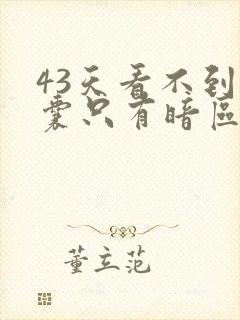 43天看不到
囊只有暗區
董立范